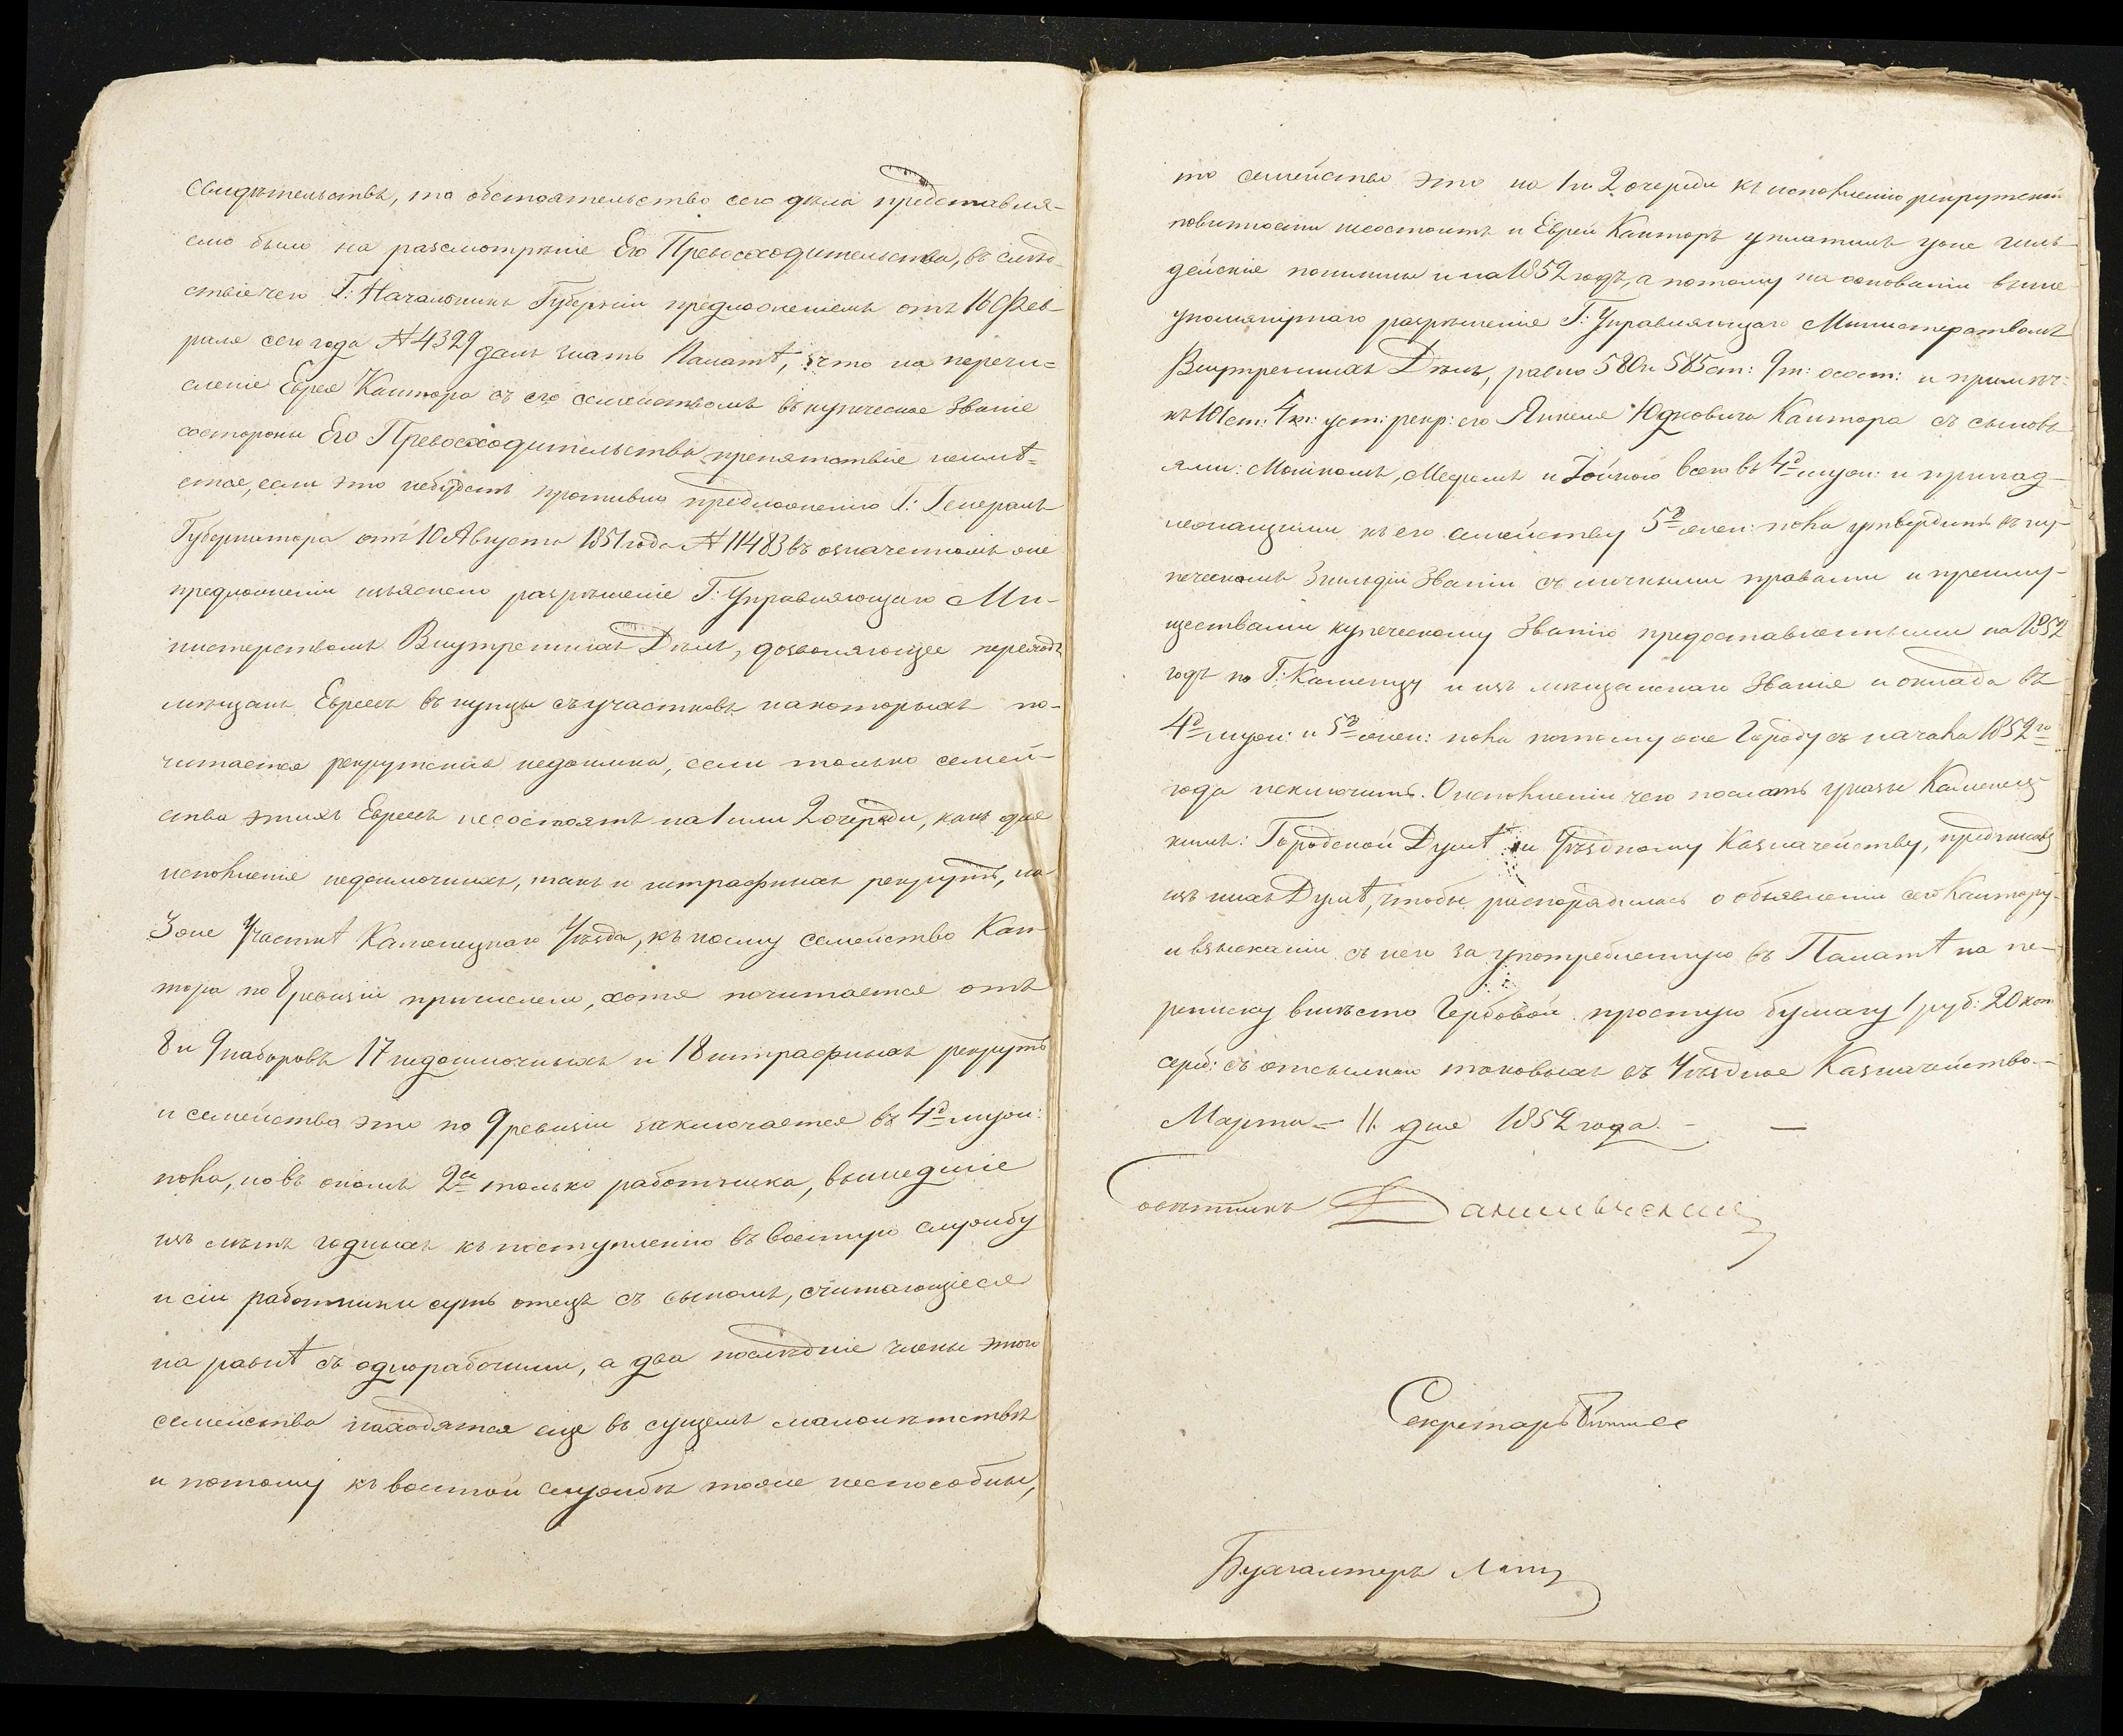 свидѣтельствѣ, то обстоятельство сего дѣла представля-
емо было на разсмотрѣніе Его Превосходительства, въ слѣд-
ствіе чего Г: Начальникъ Губерніи предложеніемъ отъ 16 Фев-
раля сего года № 4329 далъ знать Палатѣ, что на перечи=
сленіе Еврея Кантора съ его семействомъ въ купеческое званіе
состороны Его Превосходительства препятствіе неимѣ=
етсе, если это небудетъ противно предложенію Г: Генералъ
Губернатора отъ 10 Августа 1851 года № 11483 въ означенномъ оне
предложеніи изъяснено разрѣшеніе Г: Управляющаго Ми-
нистерствомъ Внутреннихъ Дѣлъ, дозволяющее переходъ
мѣщанъ Евреевъ въ купцы съ участковъ накоторыхъ по-
читается рекрутская недоимка, если только семей-
ства этихъ Евреевъ несостоятъ на 1 или 2 очереди, какъ для
исполненіе недоимочныхъ, такъ и штрафныхъ рекрутъ, на
3 оне Участкѣ Каменецкаго Уѣзда, къ коему семейство Кан-
тора по 9 ревизіи причислено, хотя почитается отъ
8 и 9 наборовъ 17 недоимочныхъ и 18 штрафныхъ рекрутъ
и семейства это по 9 ревизіи заключается въ 4хъ муж:
пола, новъ ономъ 2ва только работника, вышедшіе
изъ лѣтъ годныхъ къ поступленію въ военную службу
и сіи работники суть отецъ съ сыномъ, считающіесе
на равнѣ съ однорабочими, а два послѣдніе члены этого
семейства находятся еще въ сущемъ малолѣтствѣ
и потому къ военной службѣ тоже неспособны,
то семейство это на 1 и 2 очереди къ исполненію рекрутской
повинности несостоитъ и Еврей Канторъ уплатилъ уже гиль-
дейскіе пошлины и на 1852 годъ, а потому на основаніи выше-
упомянутаго разрѣшеніе Г: Управляющаго Министерствомъ
Внутреннихъ Дѣлъ, равно 580 и 585 ст: 9 т: осост: и примѣч:
къ 101 ст: 4 т: уст: рекр: его Янкеля Юдковича Кантора съ сыновь
ями: Мошкомъ, Мееремъ и Іойною всего въ 4хъ муж: и принад-
лежащими къ его семейству 5ю жен: пола утвердить въ ку-
печескомъ 3 гильдіи званіи съ личными правами и преиму-
ществами купеческому званію предоставленными на 1852
годъ по Г: Каменцу и изъ мѣщанскаго званіе и оклада въ
4хъ муж: и 5ти жен: пола потомуже городу съ начала 1852го
года исключить. О исполненіи чего послать указы Каменец-
кимъ: Городской Думѣ и Уѣздному Казначейству, предписавъ
изъ нихъ Думѣ, чтобы распорядилась о объявленіи сего Кантору
и взысканіи съ него за употребленную въ Палатѣ на пе-
реписку вмѣсто гербовой простую бумагу 1 руб: 20 коп
сереб: съ отсылкою таковыхъ въ Уѣздное Казначейство.—
Марта = 11 дня 1852 года. —
Совѣтникъ Данильческій
Секретарь
Бухгалтеръ